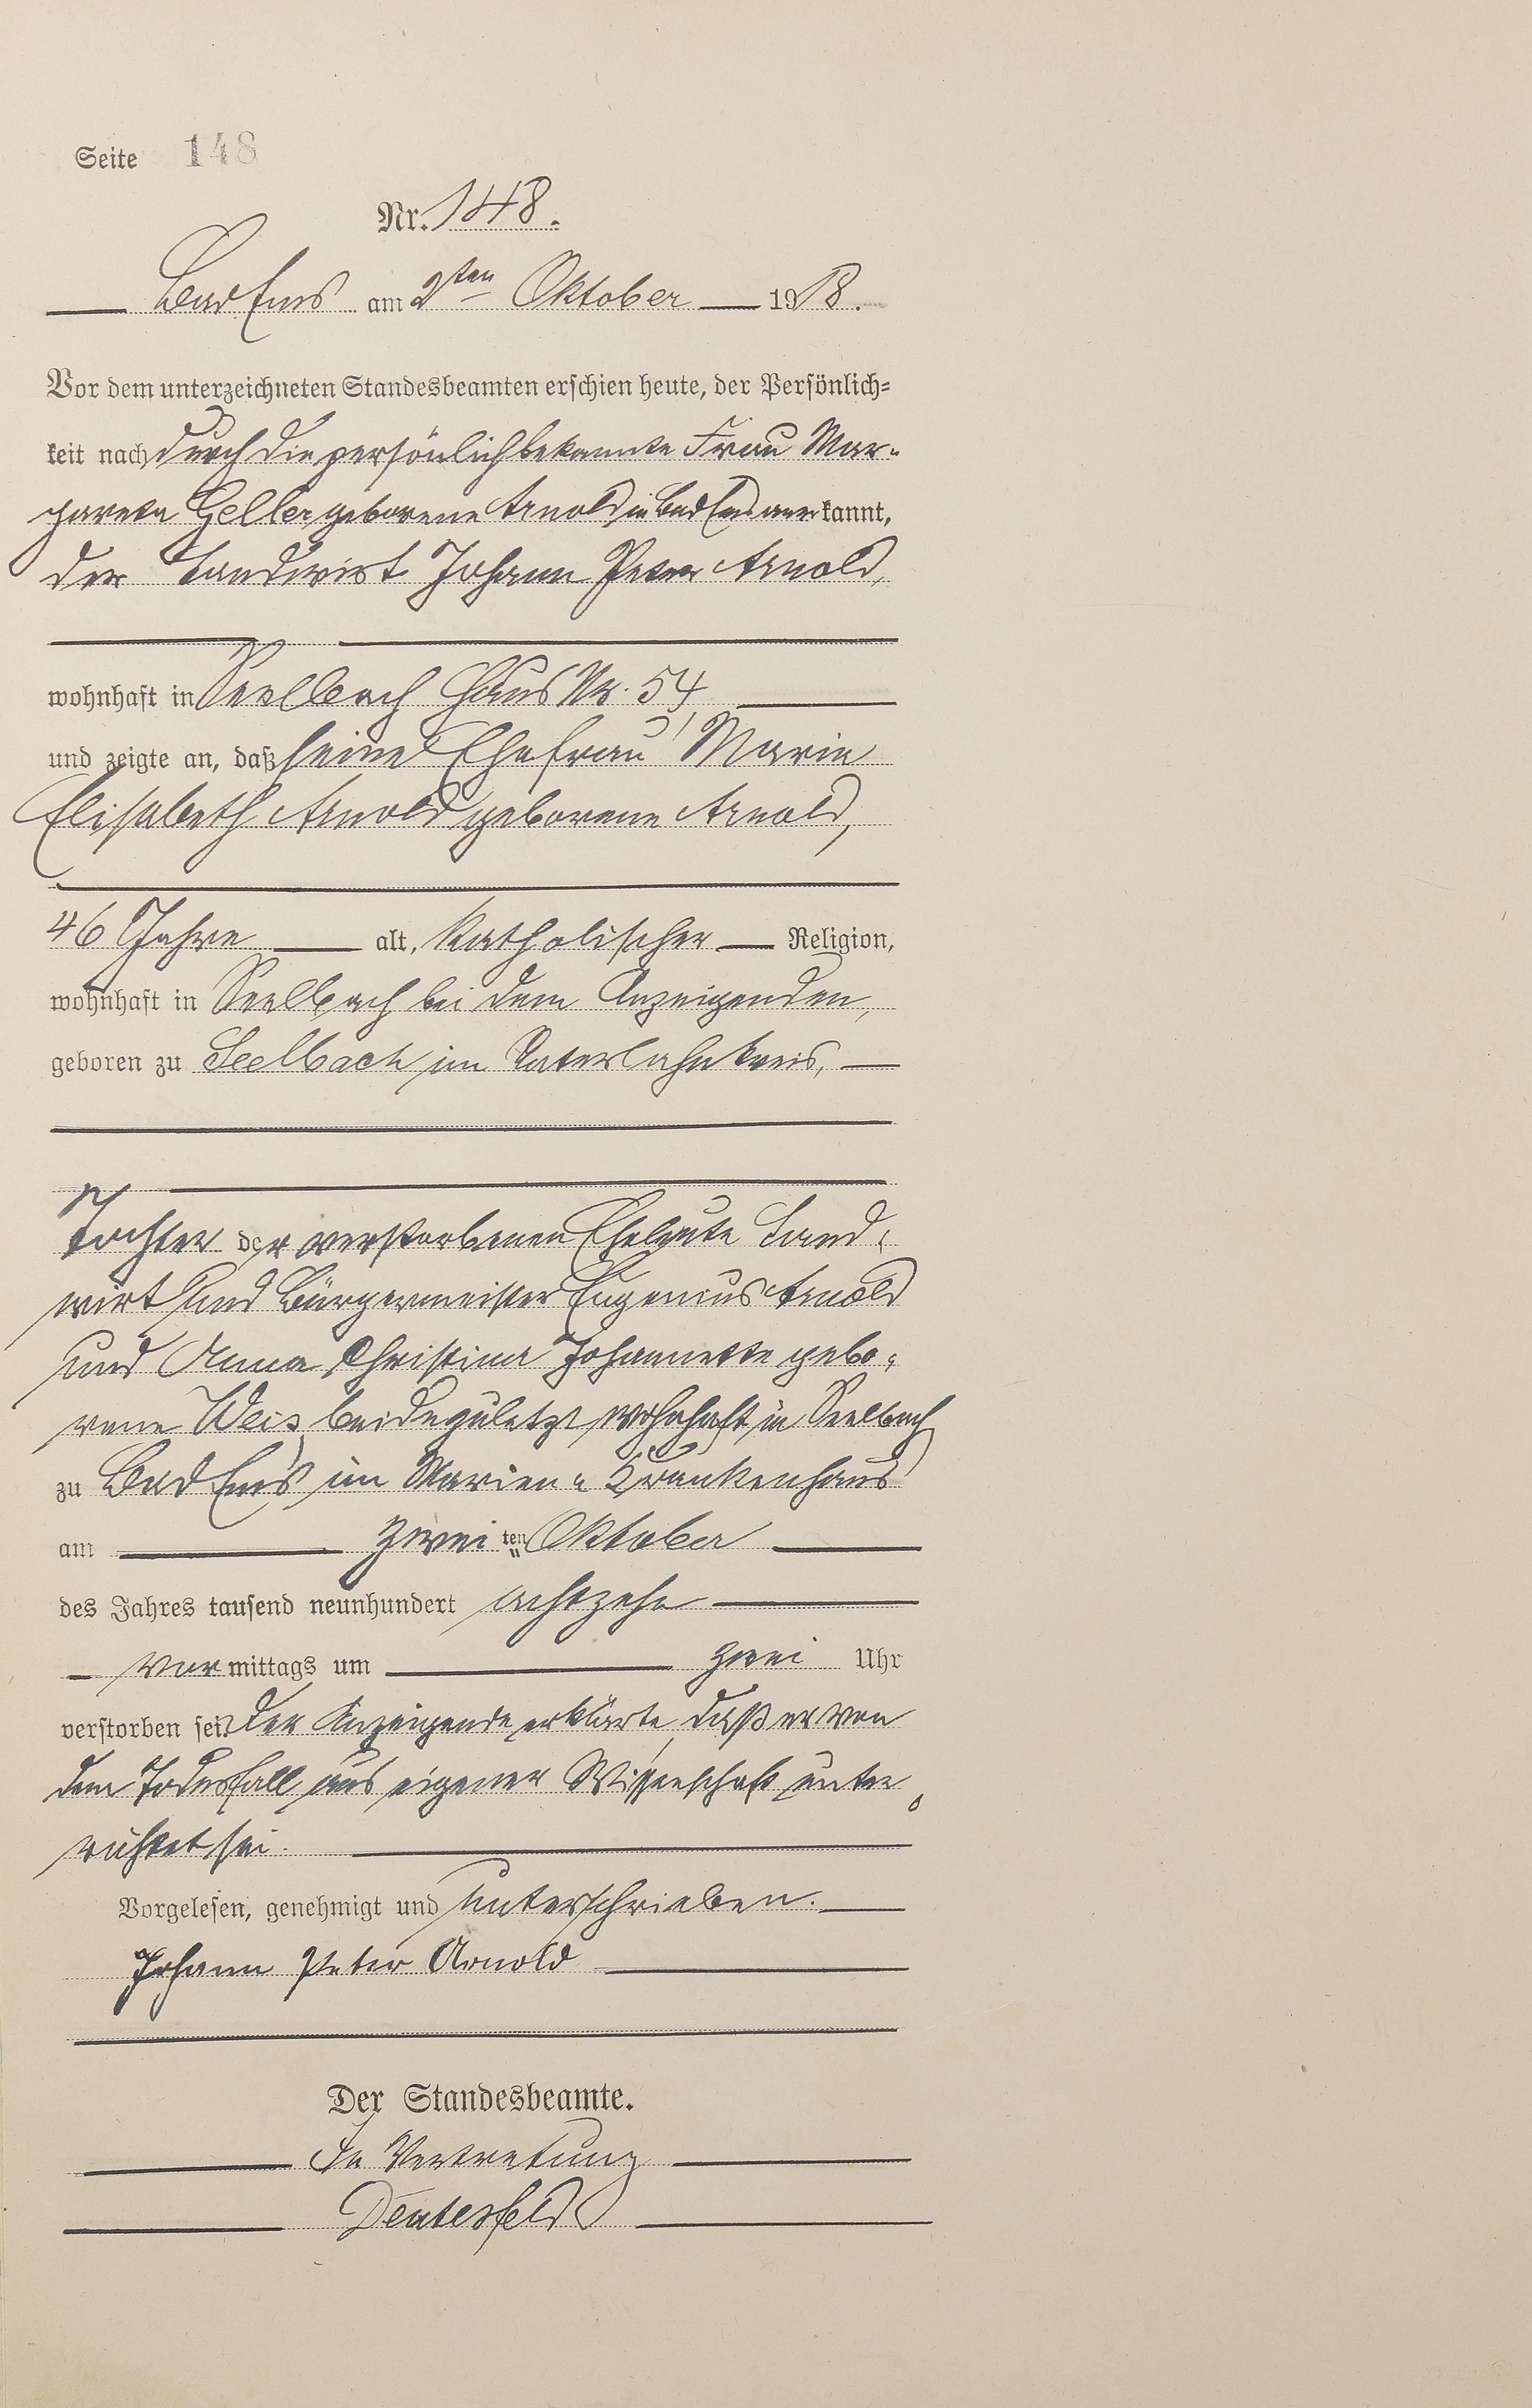 Seite 148
Nr. 148.
Bad Ems am 2ten Oktober 1918.
Vor dem unterzeichneten Standesbeamten erschien heute, der Persönlich-
keit nach durch die persönlich bekannte Frau Mar-
gareta Geller geborene Arnold in Bad Ems anerkannt,
der Landwirt Johann Peter Arnold,
wohnhaft in Seelbach Haus Nr. 54,
und zeigte an, daß seine Ehefrau Marie
Elisabeth Arnold geborene Arnold,
46 Jahre alt, katholischer Religion,
wohnhaft in Seelbach bei dem Anzeigenden,
geboren zu Seelbach im Unterlahnkreis,
Tochter der verstorbenen Eheleute Land-
wirt und Bürgermeister Eugenius Arnold
und Anna Christina Johannette gebo-
rene Weis, beide zuletzt wohnhaft in Seelbach
zu Bad Ems im Marien-Krankenhaus
am zweiten Oktober
des Jahres tausend neunhundert achtzehn
Vormittags um zwei Uhr
verstorben sei. Der Anzeigende erklärte, daß er von
dem Todesfall aus eigener Wissenschaft unter-
richtet sei.
Vorgelesen, genehmigt und unterschrieben.
Johann Peter Arnold
Der Standesbeamte.
In Vertretung
Deutesfeld